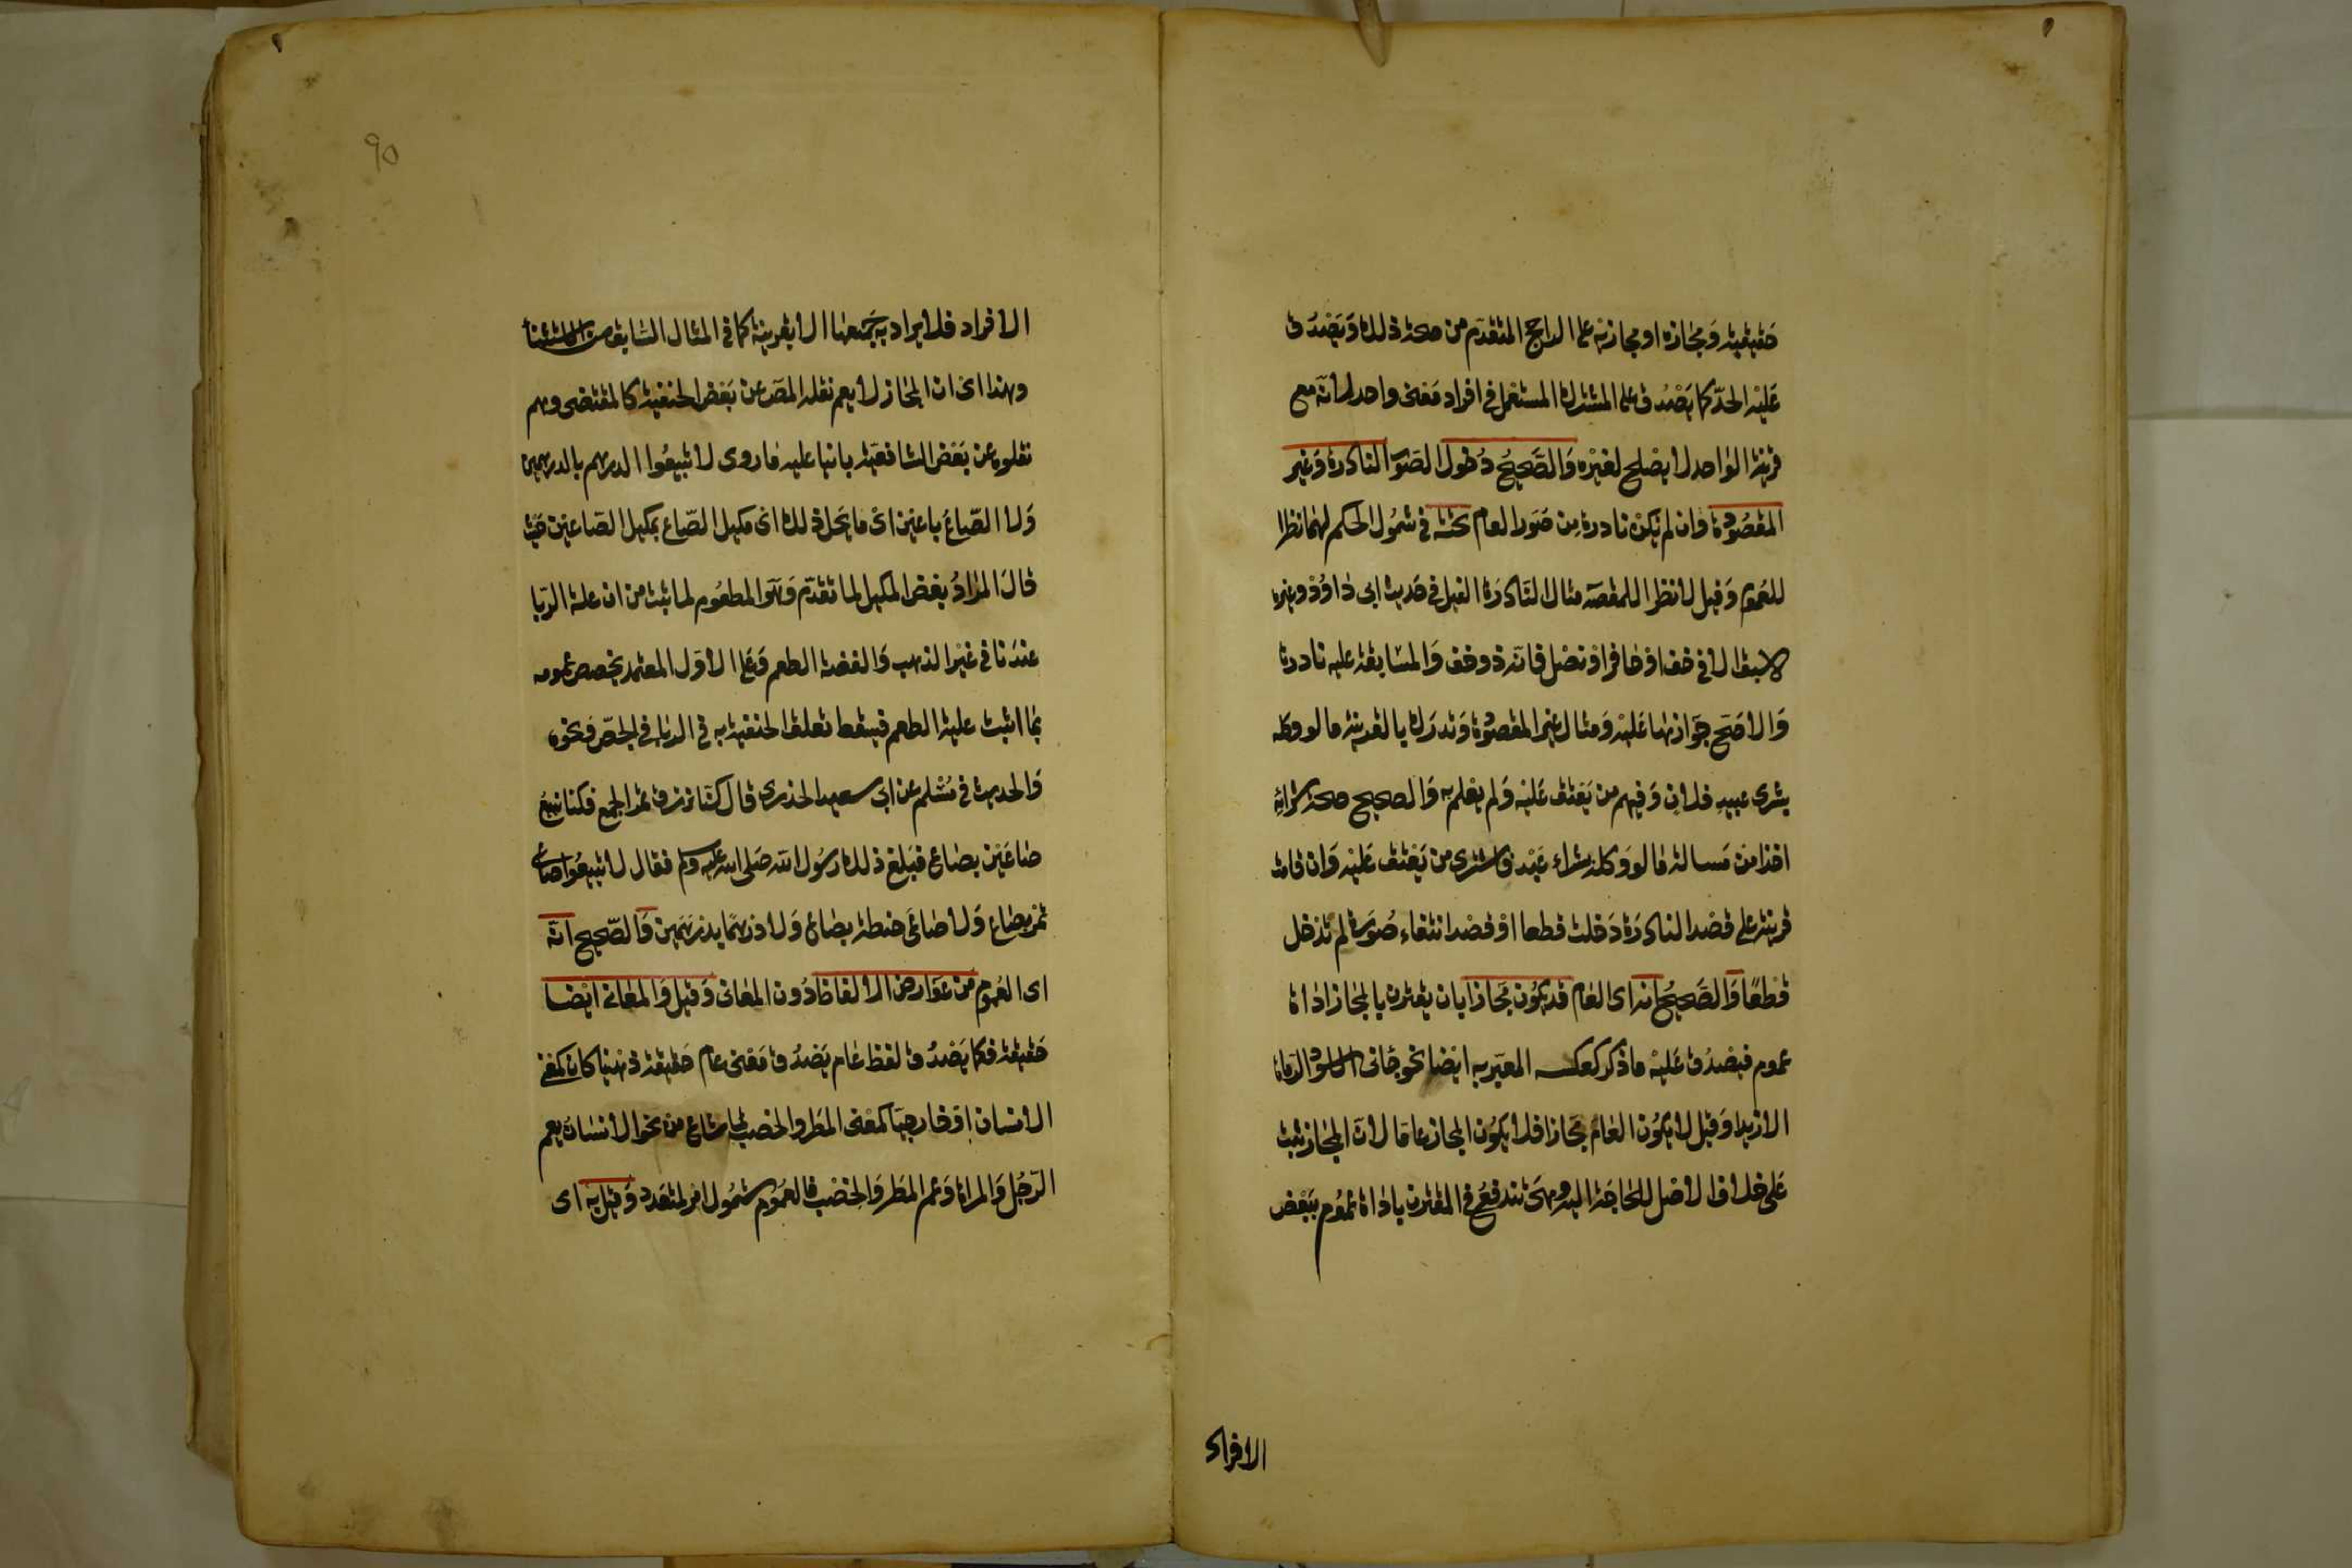 حقيقيه ومجازه او مجازيه على الراجح المتقدم من صحة ذلك ويصدق
عليه الحد كما يصدق على المشترك المستعمل في افراد معنى واحد لانه مع
قرينة الواحد لا يصلح لغيره والصحيح دخول الصور النادرة وغير
المقصودة وان لم تكن نادرة من صور العام تحته في شمول الحكم لهما نظرا
للعموم وقيل لا نظرا للمقصد مثال النادرة الفيل في حديث ابى داود وغيره
لا سبق الا في خف او حافر او نصل فانه ذو خف والمسابقة عليه نادرة
والاصح جوازها عليه ومثال غير المقصودة وتدرك بالقرينة ما لو وكله
بشرى عبيد فلان وفيهم من يعتق عليه ولم يعلم به والصحيح صحة شرائه
اخذا من مسالة ما لو وكله بشراء عبد فاشترى من يعتق عليه وان قامت
قرينة على قصد النادرة دخلت قطعا او قصد انتفاء صورة لم تدخل
قطعا والصحيح انه اى العام قد يكون مجازا بان يقترن بالمجاز اداة
عموم فيصدق عليه ما ذكر كعكسه المعبر به ايضا نحو جانى الاسود الرماة
الا زيدا وقيل لا يكون العام مجازا فلا يكون المجاز عاما لان المجاز ثبت
على خلاف الاصل للحاجة اليه وهى تندفع في المقترن باداة عموم ببعض
الافراد
90
الافراد فلا يراد به جميعها الا بقرينة كما في المثال السابق من الاستثنأ
وهذا اى ان المجاز لا يعم نقله المص عن بعض الحنفية كالمقتضى وهم
نقلوه عن بعض الشافعية بانيا عليه ما روى لا تبيعوا الدرهم بالدرهمين
ولا الصاع باعين اى ما يحل ذلك اى مكيل الصاع بمكيل الصاعين حيث
قال المراد بعض المكيل لما تقدم وهو المطعوم لما ثبت من ان علة الربا
عندنا في غير الذهب والفضة الطعم وعلى الاول المعتمد يخصص عمومه
بما اثبت علية الطعم فيسقط تعلق الحنفية به في الربا في الجص ونحوه
والحديث في مسلم عن ابى سعيد الخذرى قال كنا نرزق تمر الجمع فكنا نبيع
صاعين بصاع فبلغ ذلك رسول الله صلى الله عليه وسلم فقال لا تبيعوا صاعى
تمر بصاع ولا صاعى حنطة بصاع ولا درهما بدرهمين والصحيح انه
اى العموم من عوارض الالفاظ دون المعانى وقيل والمعانى ايضا
حقيقة فكما يصدق لفظ عام يصدق معنى عام حقيقة ذهنيا كان كمعنى
الانسان او خارجيا كمعنى المطر والخصب لما شاع من نحو الانسان يعم
الرجل والمراة وعم المطر والخصب فالعموم شمول امر لمتعدد وقيل به اى